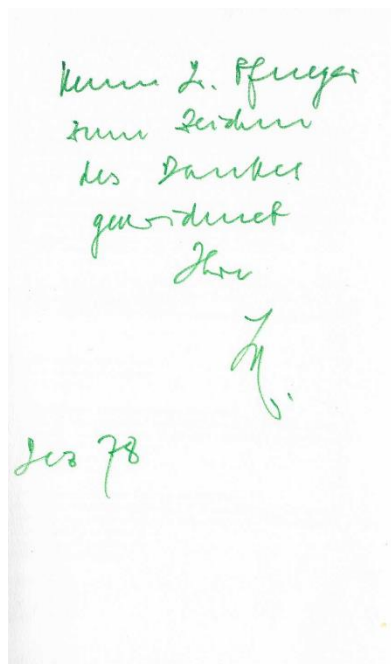 Herrn L. Pfleger
zum Zeichen
des Dankes
gewidmet
Ihr
Dez 78